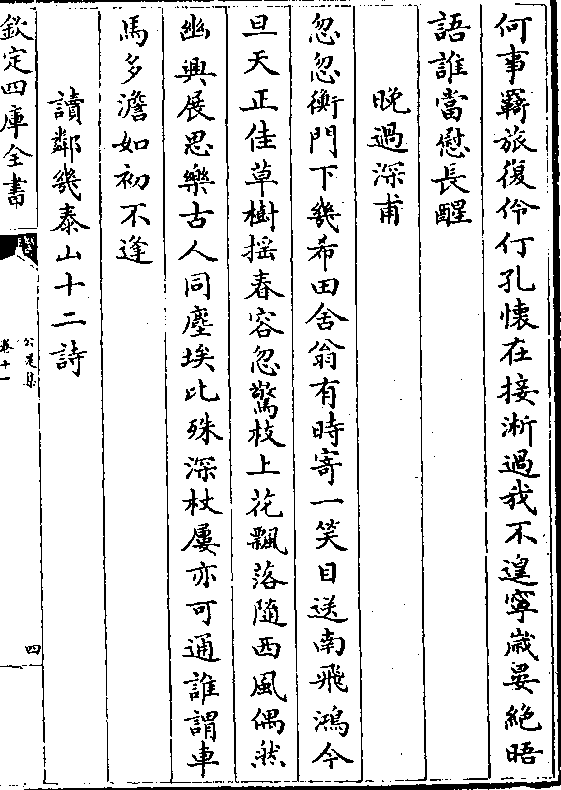 何事羇旅復伶仃孔懷在接淅過我不遑寧嵗晏絶晤
語誰當慰長醒
晚過深甫
忽忽衡門下幾希田舍翁有時寄一笑目送南飛鴻今
旦天正佳草樹摇春容忽驚枝上花飄落隨西風偶然
幽興展思樂古人同塵埃比殊深杖屨亦可通誰謂車
馬多澹如初不逢
讀鄰幾泰山十二詩
欽定四庫全書
公是集
卷十一
四